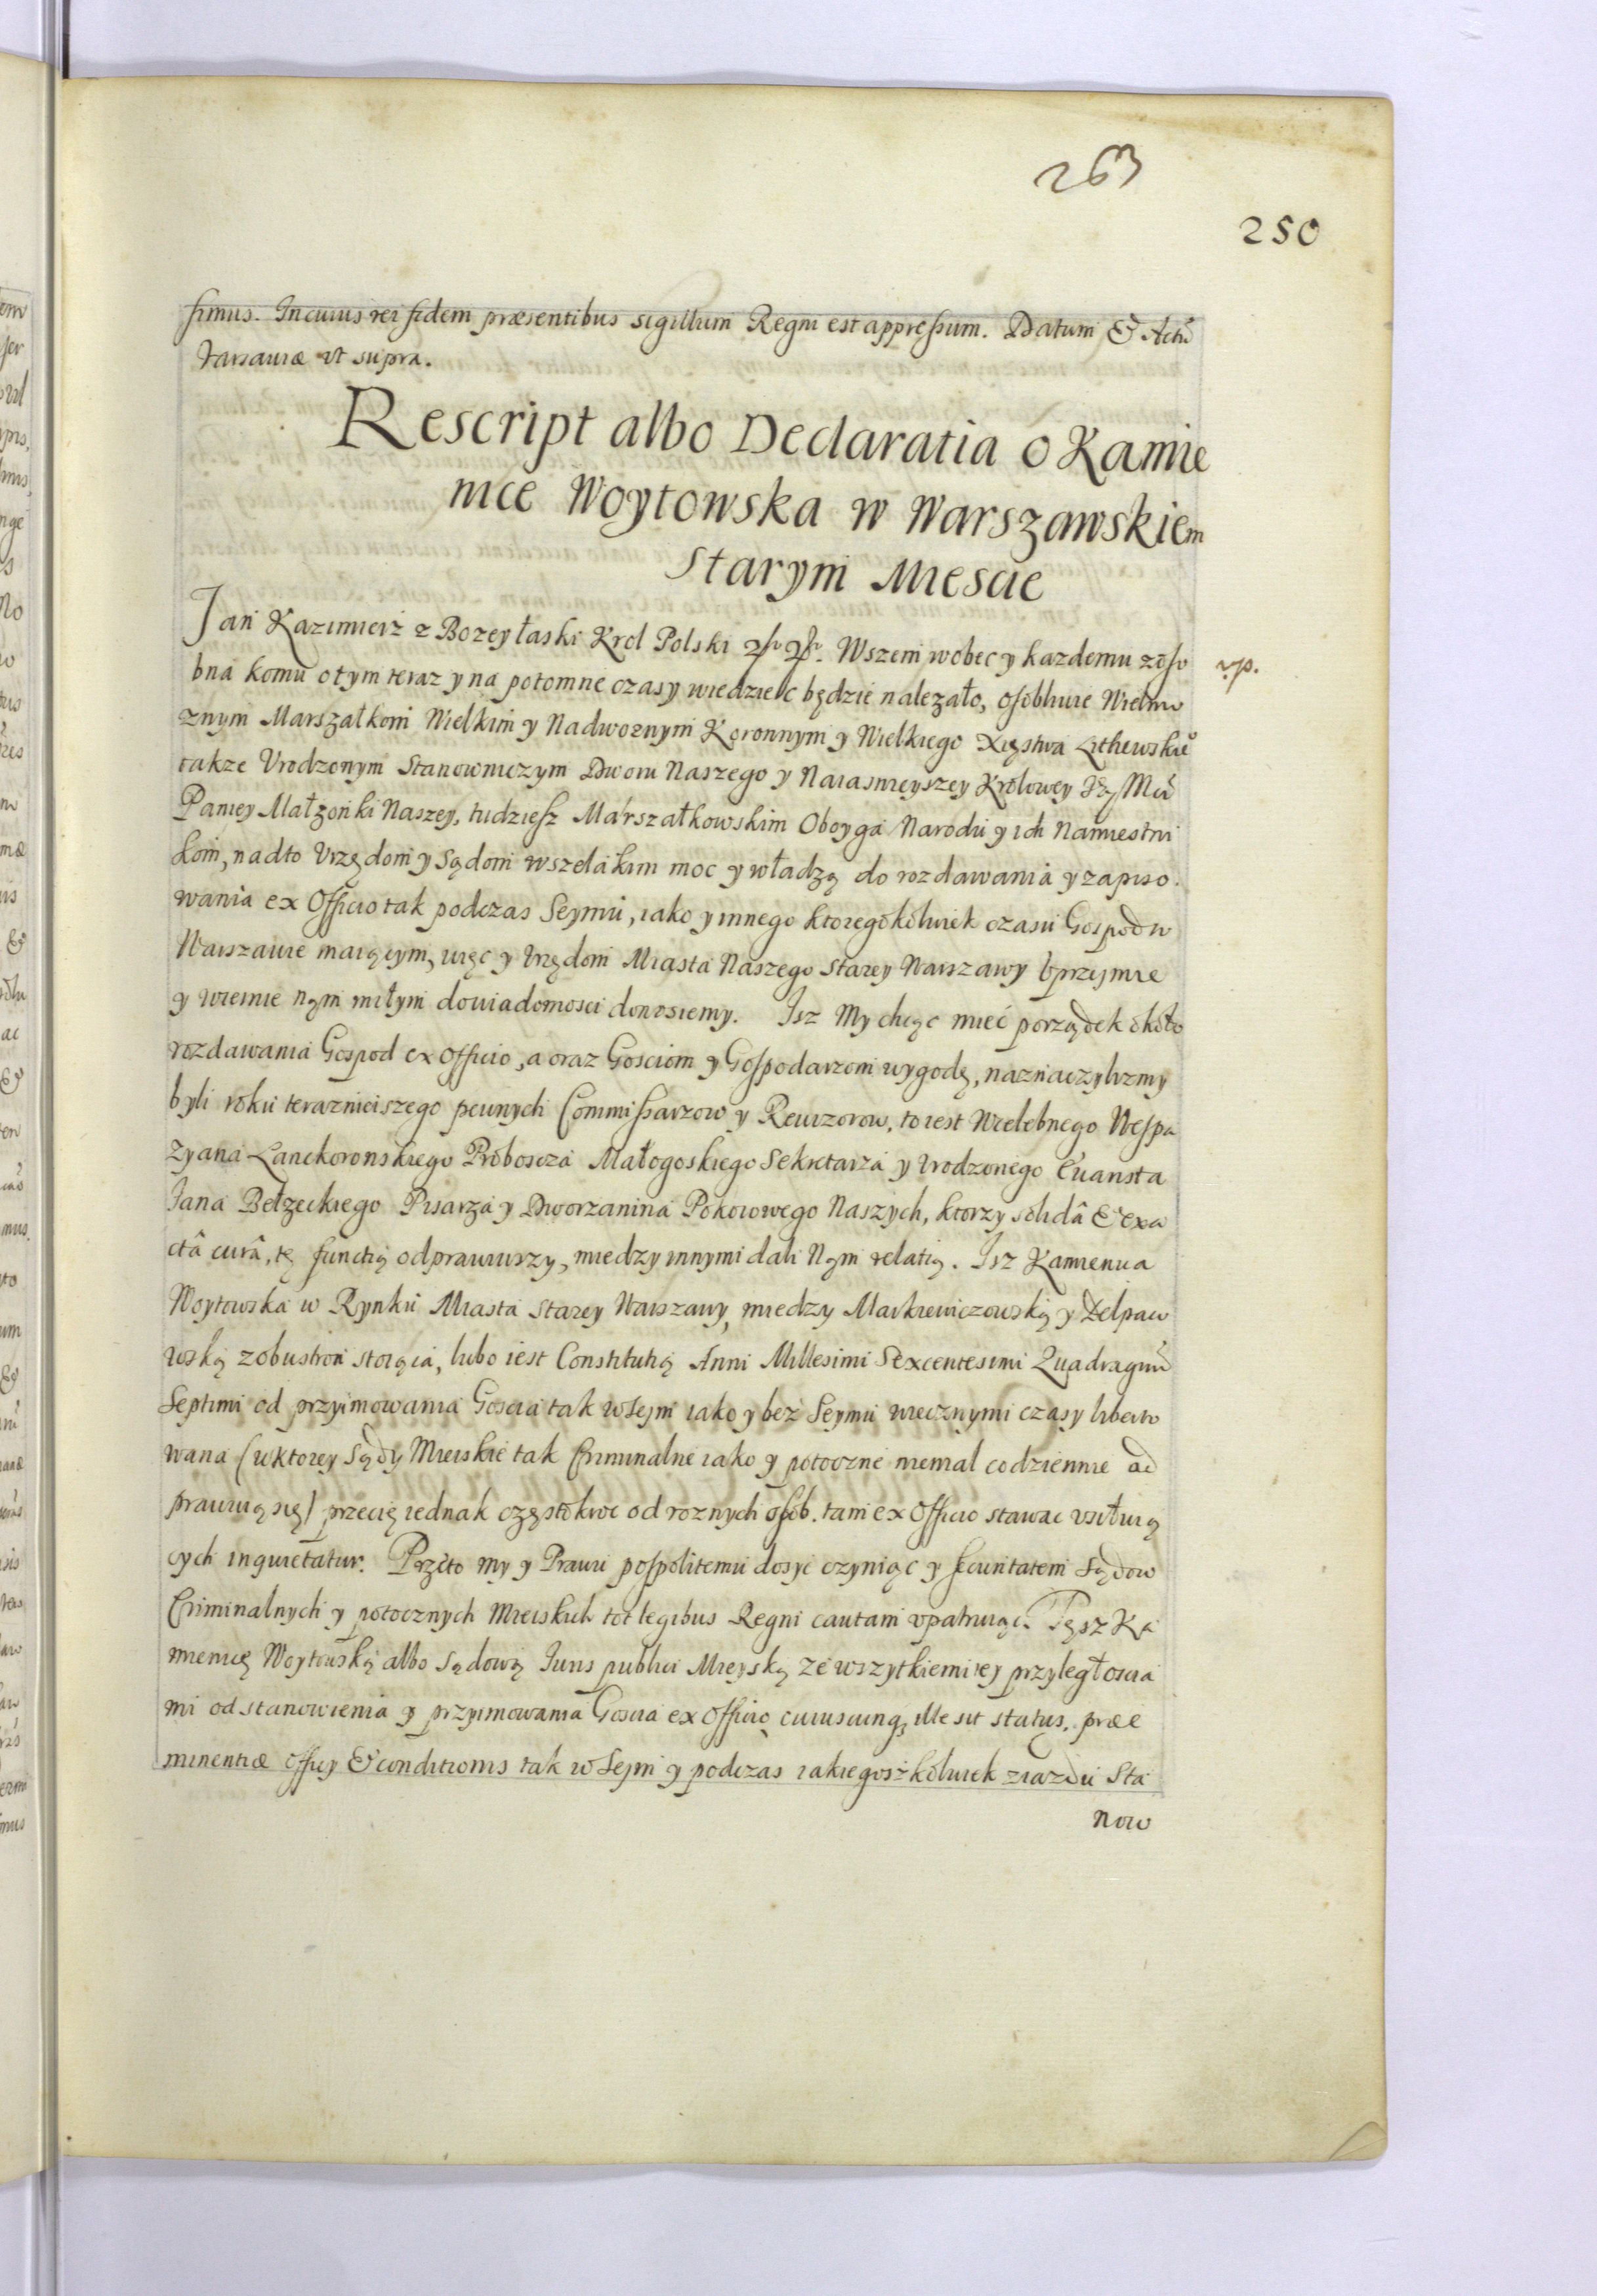 263
250
simus. In cuius rei fidem præsentibus sigillum Regni est appressum. Datum & Actũ
Varsauiæ vt supra.
Rescript albo Declaratia o Kamie
nice Woytowska w Warszawskiem
Starym Miescie
Jan Kazimierz z Bozey łaski Krol Polski &c &c. Wszem wobec y kazdemu zoso
bna komu o tym teraz y na potomne czasy wiedziec będzie nalezało, osobliwie Wielmo
znym Marszałkom Wielkim y Nadwornym Koronnym y Wielkiego Xięstwa Lithewskie°
takze Vrodzonym Stanowniczym Dworu Naszego y Naiasnieyszey Krolowey Jey Mci
Paniey Małzonki Naszey, tudziesz Marszałkowskim Oboyga Narodu y ich Namiestni
kom, nadto Vrzędom y Sądom wszelakim moc y władzą do rozdawania y zapiso
wania ex Officio tak podczas Seymu, iako y innego ktoregokolwiek czasu Gospod w
Warszawie maiącym, więc y Vrzędom Miasta Naszego Starey Warszawy vprzeymie
y wiernie Nąm miłym do wiadomosci donosiemy. Isz My chcąc mieć porządek około
rozdawania Gospod ex Officio, a oraz Gosciom y Gospodarzom wygodę, naznaczylizmy
byli roku terazniciszego pewnych Commissarzow y Rewizorow, to iest Wielebnego Wespa
zyana Lanckoronskiego Proboscza Małogoskiego Sekretarza y Vrodzonego Ewarista
Jana Bełzeckiego Pisarza y Dworzanina Pokoiowego Naszych, ktorzy solidâ & exa
ctâ curâ, tę functią odprawiwszy, miedzy innymi dali Nąm relatią. Isz Kamienica
Woytowska w Rynku Miasta Starey Warszawy, miedzy Markiewiczowską y Delpaco
wską z obustron stoiąca, lubo iest Constitutią Anni Millesimi Sexcentesimi Quadragesimi
Septimi od przyimowania Goscia tak w Seym iako y bez Seymu wiecznymi czasy liberto
wana (w ktorey Sądy Mieiskie tak Criminalne iako y potoczne niemal codziennie od
prawuią się) przecię iednak częstokroc od roznych osob. tam ex Officio stawac vsiłuią
cych inquietatur. Przeto my y Prawu pospolitemu dosyć czyniąc y securitatem Sądow
Criminalnych y potocznych Mieiskich tot legibus Regni cautam vpatruiąc. Tęsz Ka
mienicę Woytowską albo Sądową Iuris publici Mieyską ze wszytkiemi iey przyległoscia
mi od stanowienia y przyimowania Goscia ex Officio cuiuscunq, ille sit status, præe
minentiæ officy & conditionis tak w Seym y podczas iakiegoszkolwiek ziazdu Sta
now